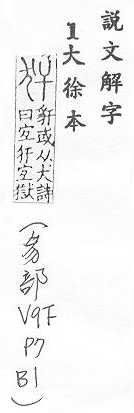 説文解字
1大徐本
犴
豻或从犬詩
曰宜犴宜獄
(豸部 V9F P7 B1)